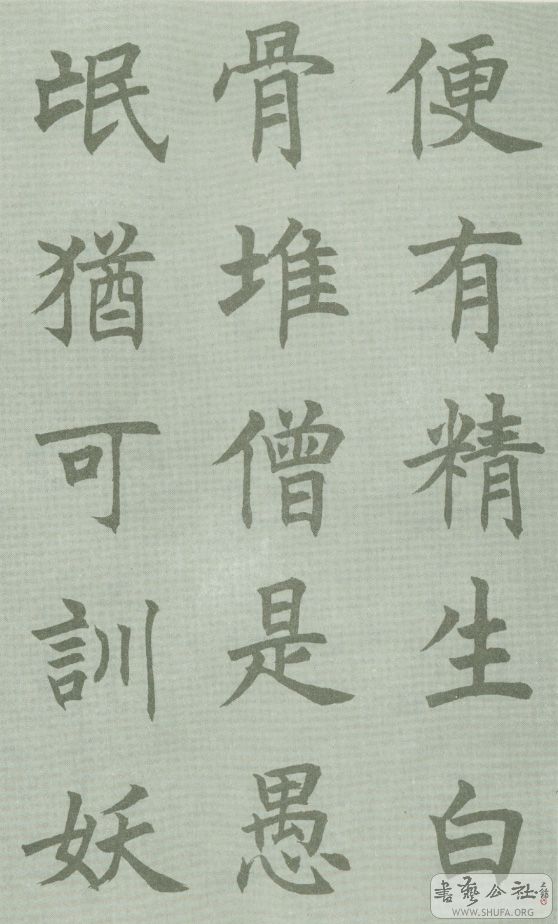 便有精生白
骨堆僧是愚
氓猶可訓妖
書藝公社
WWW.SHUFA.ORG